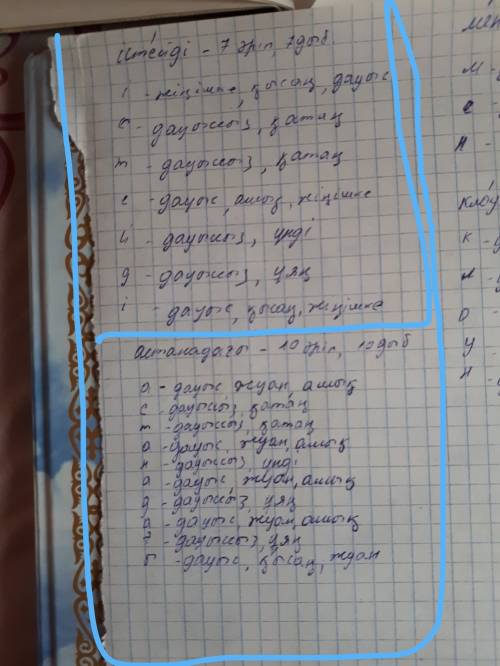 істейді - 7 әріп, 7 дыб.
і - жіңішке, қысаң, дауыс
с - дауыссыз, қатаң
т - дауыссыз, қатаң
е - дауыс, ашық, жіңішке
й - дауыссыз, үнді
д - дауыссыз, ұяң
і - дауыс, қысаң, жіңішке
астанадағы - 10 әріп, 10 дыб
а - дауыс жуан, ашық
с - дауыссыз, қатаң
т - дауыссыз, қатаң
а - дауыс, жуан, ашық
н - дауыссыз, үнді
а - дауыс, жуан, ашық
д - дауыссыз, ұяң
а - дауыс, жуан, ашық
ғ - дауыссыз, ұяң
ы - дауыс, қысаң, жуан
М -
е
Н -
К -
Л -
О -
У
Н